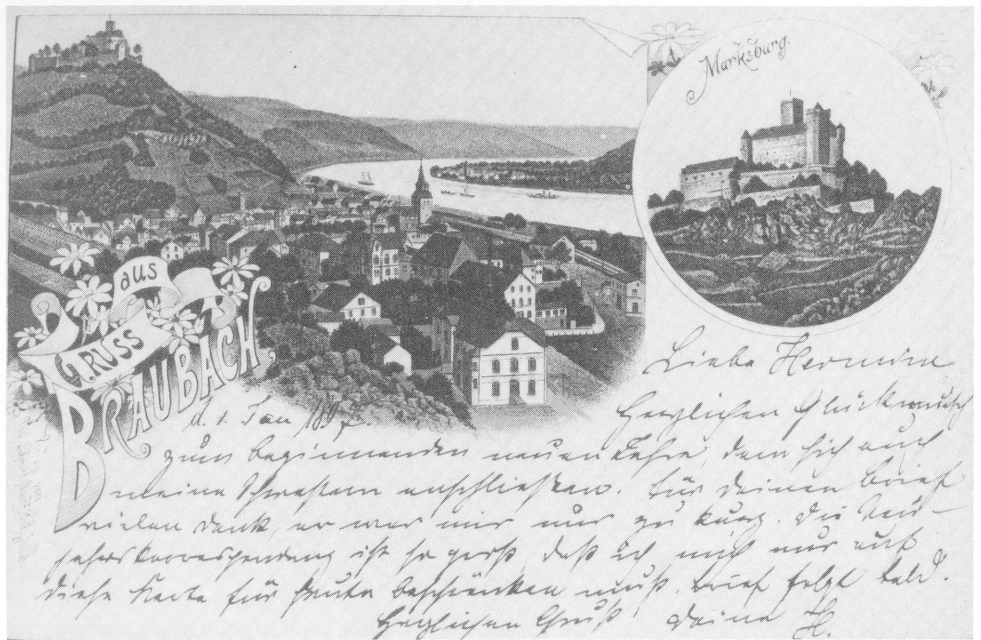 Marksburg.
Gruss
aus
Braubach,
d. 1. Jan 1897.
Liebe Hermine
Herzlichen Glückwunsch
zum beginnenden neuen Jahre, dem sich auch
meine Schwestern anschließen. Für Deinen Brief
vielen Dank, er war mir nur zu kurz. Die Neu-
jahrskorrespondenz ist so groß daß ich mich nur auf
diese Karte für heute beschränken muß. Brief folgt bald.
Herzlichen Gruß Deine H.